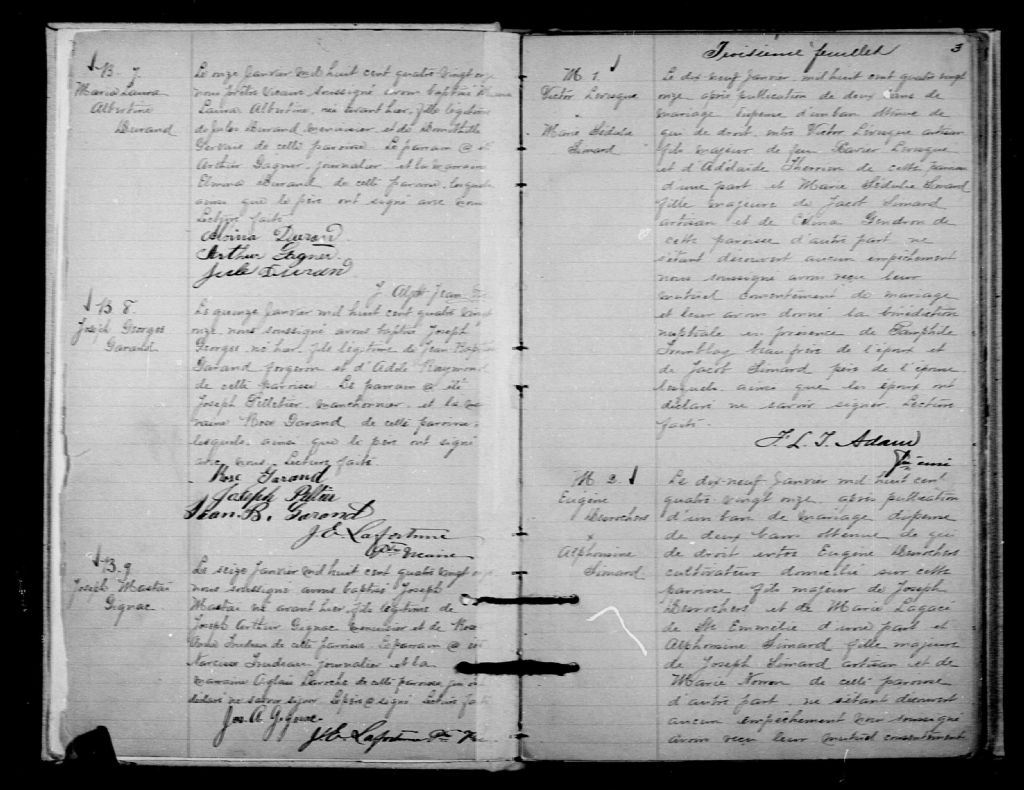 B. 7.
Maria Laura
Albertine
Durand
Le onze Janvier mil huit cent quatre vingt
nous prêtre Vicaire soussigné avons baptisé Marie
Laura Albertine, née avant hier, fille légitime
de Jules Durand menuisier et de Domithilde
Gervais de cette paroisse. Le parrain @ été
Arthur Gagner, journalier et la marraine
Elmina Durand de cette paroisse, lesquels
ainsi que le père ont signé avec nous
Lecture faite
Durand
Arthur Gagner.
Jule Durand
J. Alph. Jean
B 8.
Joseph Georges
Garand
Le quinze Janvier mil huit cent quatre vingt
onze, nous soussigné avons baptisé Joseph
Georges, né hier, fils légitime de Jean Baptiste
Garand forgeron et d'Adèle Raymond
de cette paroisse. Le parrain @ été
Joseph Pelletier, manchonnier, et la mar
raine Rose Garand de cette paroisse,
lesquels, ainsi que le père ont signé
avec nous. Lecture faite.
Rose Garand
Joseph Peltier
Jean. B. Garand
J. E. Lafortune
Ptre Vicaire
B. 9
Joseph Mastai
Gignac
Le seize Janvier mil huit cent quatre vingt onze
nous soussigné avons baptisé Joseph
Mastai né avant hier, fils légitime de
Joseph Arthur Gignac menuisier et de Rose
Anna Trudeau de cette paroisse. Le parrain @ été
Narcisse Trudeau journalier et la
marraine Aglaé Laroche de cette paroisse qui
déclaré ne savoir signer. Le père @ signé. Lecture faite
Jos. A. Gignac.
J. E. Lafortune Ptre
Troisième feuillet
3
M 1.
Victor Levesque
x
Marie Sédulie
Simard
Le dix-neuf Janvier mil huit cent quatre vingt
onze après publication de deux bans de
mariage dispense d'un ban obtenue de
qui de droit entre Victor Levesque artisan
fils majeur de feu Xavier Levesque
et d'Adélaïde Therrien de cette paroisse
d'une part et Marie Sédulie Simard
fille majeure de Jacob Simard
artisan et de Célina Gendron de
cette paroisse d'autre part ne
s'étant découvert aucun empêchement
nous soussigné avons reçu leur
mutuel consentement de mariage
et leur avons donné la bénédiction
nuptiale en présence de Pamphile
Tremblay beau frère de l'époux et
de Jacob Simard père de l'épouse
lesquels ainsi que les époux ont
déclaré ne savoir signer. Lecture
faite.
F. L. T. Adam
Ptre curé
M 2.
Eugène
Desrochers
x
Alphonsine
Simard
Le dix-neuf Janvier mil huit cent
quatre-vingt onze après publication
d'un ban de mariage dispense
de deux bans obtenue de qui
de droit entre Eugène Desrochers
cultivateur domicilié sur cette
paroisse fils majeur de Joseph
Desrochers et de Marie Lagacé
de Ste Emmelie d'une part et
Alphonsine Simard fille majeure
de Joseph Simard artisan et de
Marie de cette paroisse
d'autre part ne s'étant découvert
aucun empêchement nous soussigné
avons reçu leur mutuel consentement